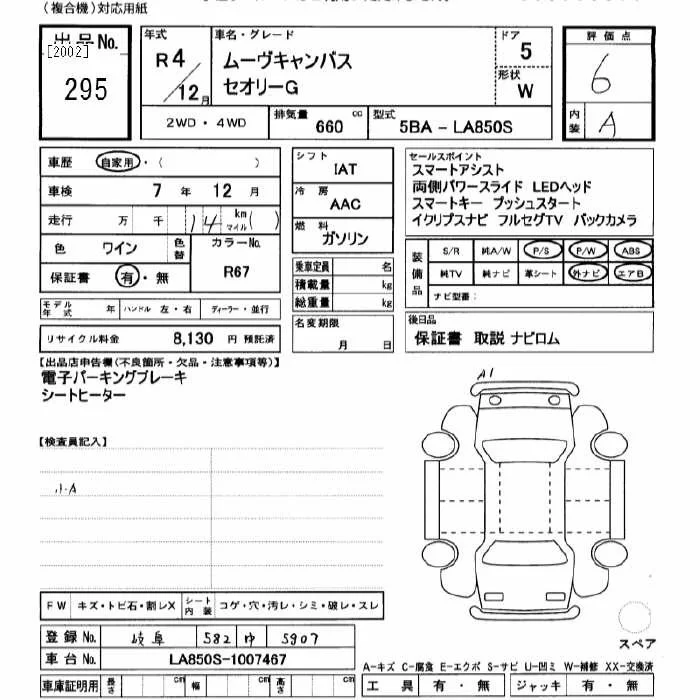 （複合機）対応用紙
出品No.
[2002]
295
年式
R 4 / 12 月
車名・グレード
ムーヴキャンバス
セオリーG
ドア
5
形状
W
評価点
6
内装
A
2WD・4WD
排気量 660 cc
型式 5BA － LA850S
車歴 自家用・（ ）
車検 7 年 12 月
走行 万 千 14 km マイル( )
色 ワイン 色替 カラーNo.
R67
保証書 有・無
モデル年式 年 ハンドル 左・右 ディーラー・並行
リサイクル料金 8,130 円 預託済
シフト
IAT
冷房
AAC
燃料
ガソリン
乗車定員 名
積載量 kg
総重量 kg
名変期限
月 日
セールスポイント
スマートアシスト
両側パワースライド LEDヘッド
スマートキー プッシュスタート
イクリプスナビ フルセグTV バックカメラ
装備品
S/R 純A/W P/S P/W ABS
純TV 純ナビ 革シート 外ナビ エアB
ナビ型番：
後日品
保証書 取説 ナビロム
【出品店申告欄(不良箇所・欠品・注意事項等)】
電子パーキングブレーキ
シートヒーター
【検査員記入】
小A
A1
FW キズ・トビ石・割レX シート内装 コゲ・穴・汚レ・シミ・破レ・スレ
登録No. 岐阜 582 ゆ 5907
車台No. LA850S-1007467
車庫証明用 長さ cm 幅 cm 高さ cm
スペア
A-キズ C-腐食 E-エクボ S-サビ U-凹ミ W-補修 XX-交換済
工具 有・無 ジャッキ 有・無